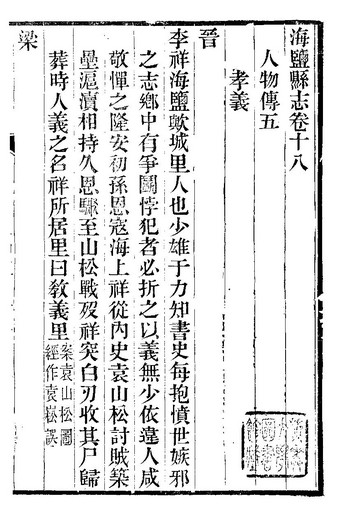 海鹽縣志卷十八
人物傳五
孝義
晉
李祥海鹽歟城里人也少雄于力知書史每抱憤世嫉邪
之志鄉中有爭鬭悖犯者必折之以義無少依違人咸
敬憚之隆安初孫恩寇海上祥從內史袁山松討賊築
壘滬瀆相持久恩驟至山松戰歿祥突白刃收其尸歸
葬時人義之名祥所居里曰敎義里
案袁山松圖
經作袁崧誤
梁